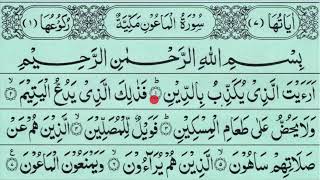 اٰيَاتُهَا (٧) سُوْرَةُ الْمَاعُوْنَ مَكِّيَّةٌ رُكُوْعُهَا (١)
بِسْمِ اللّٰهِ الرَّحْمٰنِ الرَّحِيْمِ
اَرَءَيْتَ الَّذِىْ يُكَذِّبُ بِالدِّيْنِ فَذٰلِكَ الَّذِىْ يَدُعُّ الْيَتِيْمَ
وَلَا يَحُضُّ عَلٰى طَعَامِ الْمِسْكِيْنِ فَوَيْلٌ لِّلْمُصَلِّيْنَ الَّذِيْنَ هُمْ عَنْ
صَلَاتِهِمْ سَاهُوْنَ الَّذِيْنَ هُمْ يُرَآءُوْنَ وَيَمْنَعُوْنَ الْمَاعُوْنَ